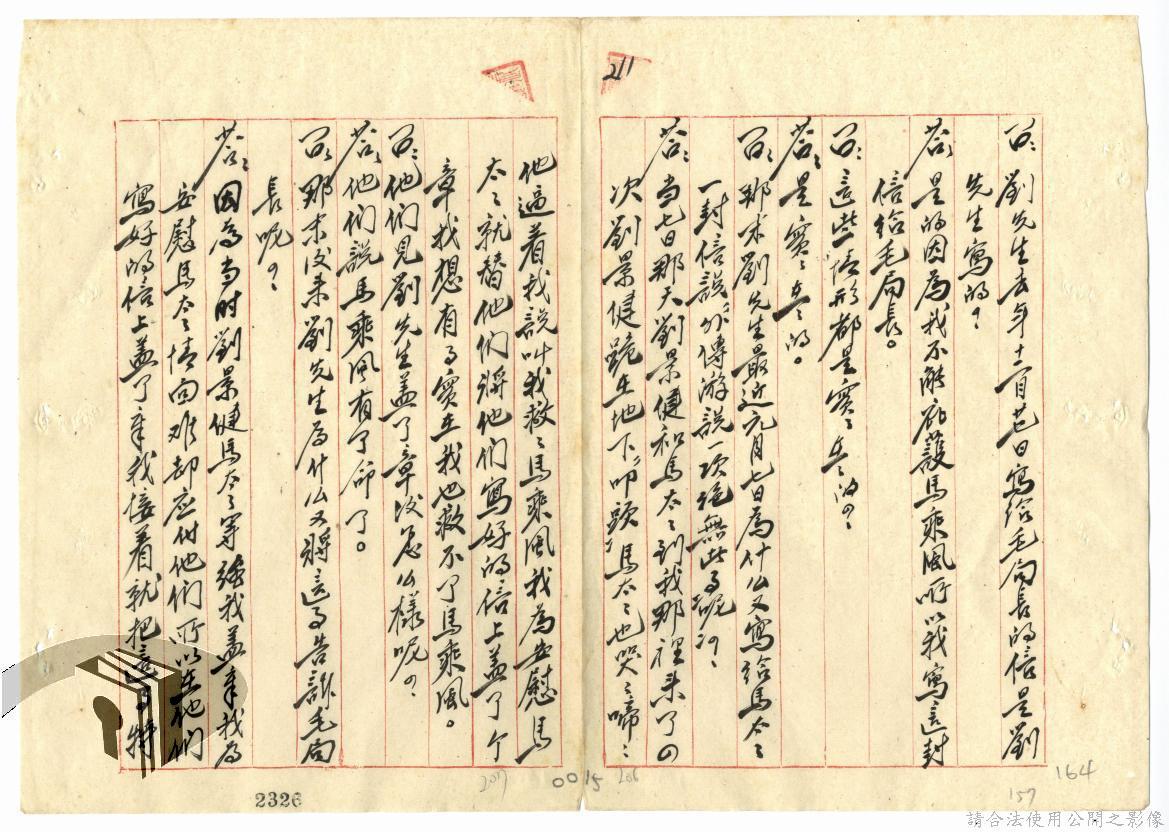 211
問：劉先生去年十二月廿七日寫給毛局長的信是劉
先生寫的？
答：是的因為我不能庇護馬乘風所以我寫這封
信給毛局長。
問：這些情形都是實實在在的？
答：是實實在在的。
問：那末劉先生最近元月七日為什么又寫給馬太太
一封信說：外傳游說一次絕無此事呢？
答：當七日那天劉景健和馬太太到我那裡來了四
次劉景健跪在地下叩頭馬太太也哭哭啼啼
他逼着我說叫我救救馬乘風我為安慰馬
太太就替他們將他們寫好的信上蓋了个
章我想有事實在我也救不了馬乘風。
問：他們見劉先生蓋了章後怎么樣呢？
答：他們說馬乘風有了命了。
問：那末後來劉先生為什么又將這事告訴毛局
長呢？
答：因為當时劉景健馬太太等強我蓋章我為
安慰馬太太情面难却应付他們所以在他們
寫好的信上蓋了章我接着就把這事特
207
0015
206
164
157
2326
請合法使用公開之影像